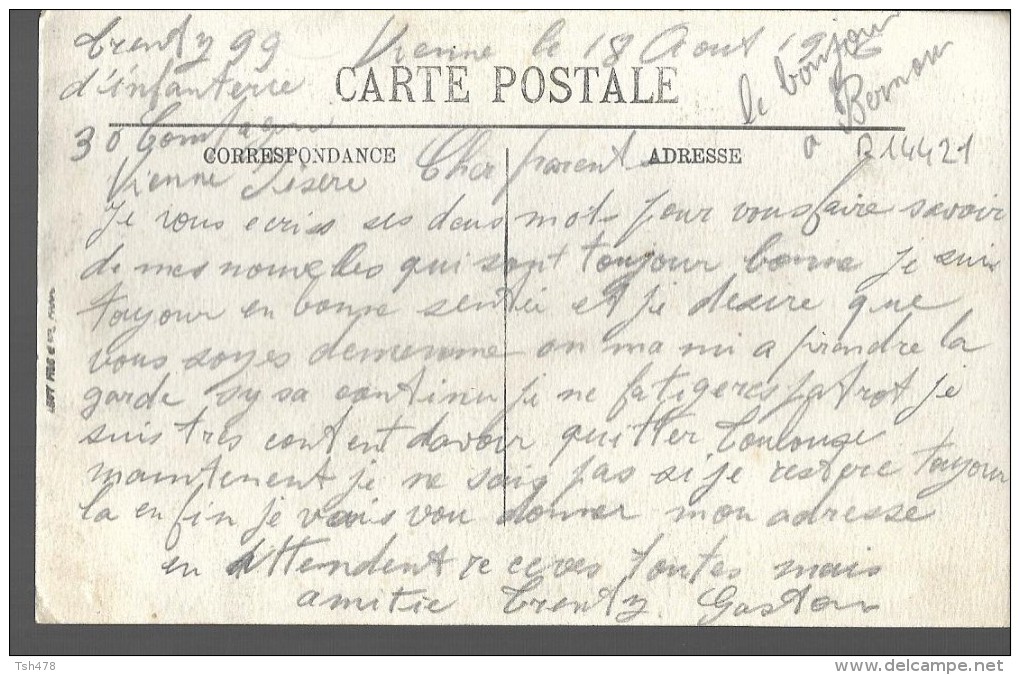 Trentz 99 Vienne le 18 Aout
d'infanterie
CARTE POSTALE
le bonjour
a Bernou
30 Compagni
CORRESPONDANCE
ADRESSE
R 14421
Vienne Lisere Cher parents
Je vous ecris ses deus mots pour vous faire savoir
de mes nouvelles qui sont toujour bonne je suis
toujour en bonne sentée et je desire que
vous soyes deme on ma mi a prendre la
garde sy sa continu je ne fatigeres pa trot je
suis tres content davoir quitter Toulouse
maintenent je ne sais pas si je restere toujour
la enfin je vais vou donner mon adresse
en attendent receves toutes mais
amitie Trentz Gaston
Tsh478
www.delcampe.net